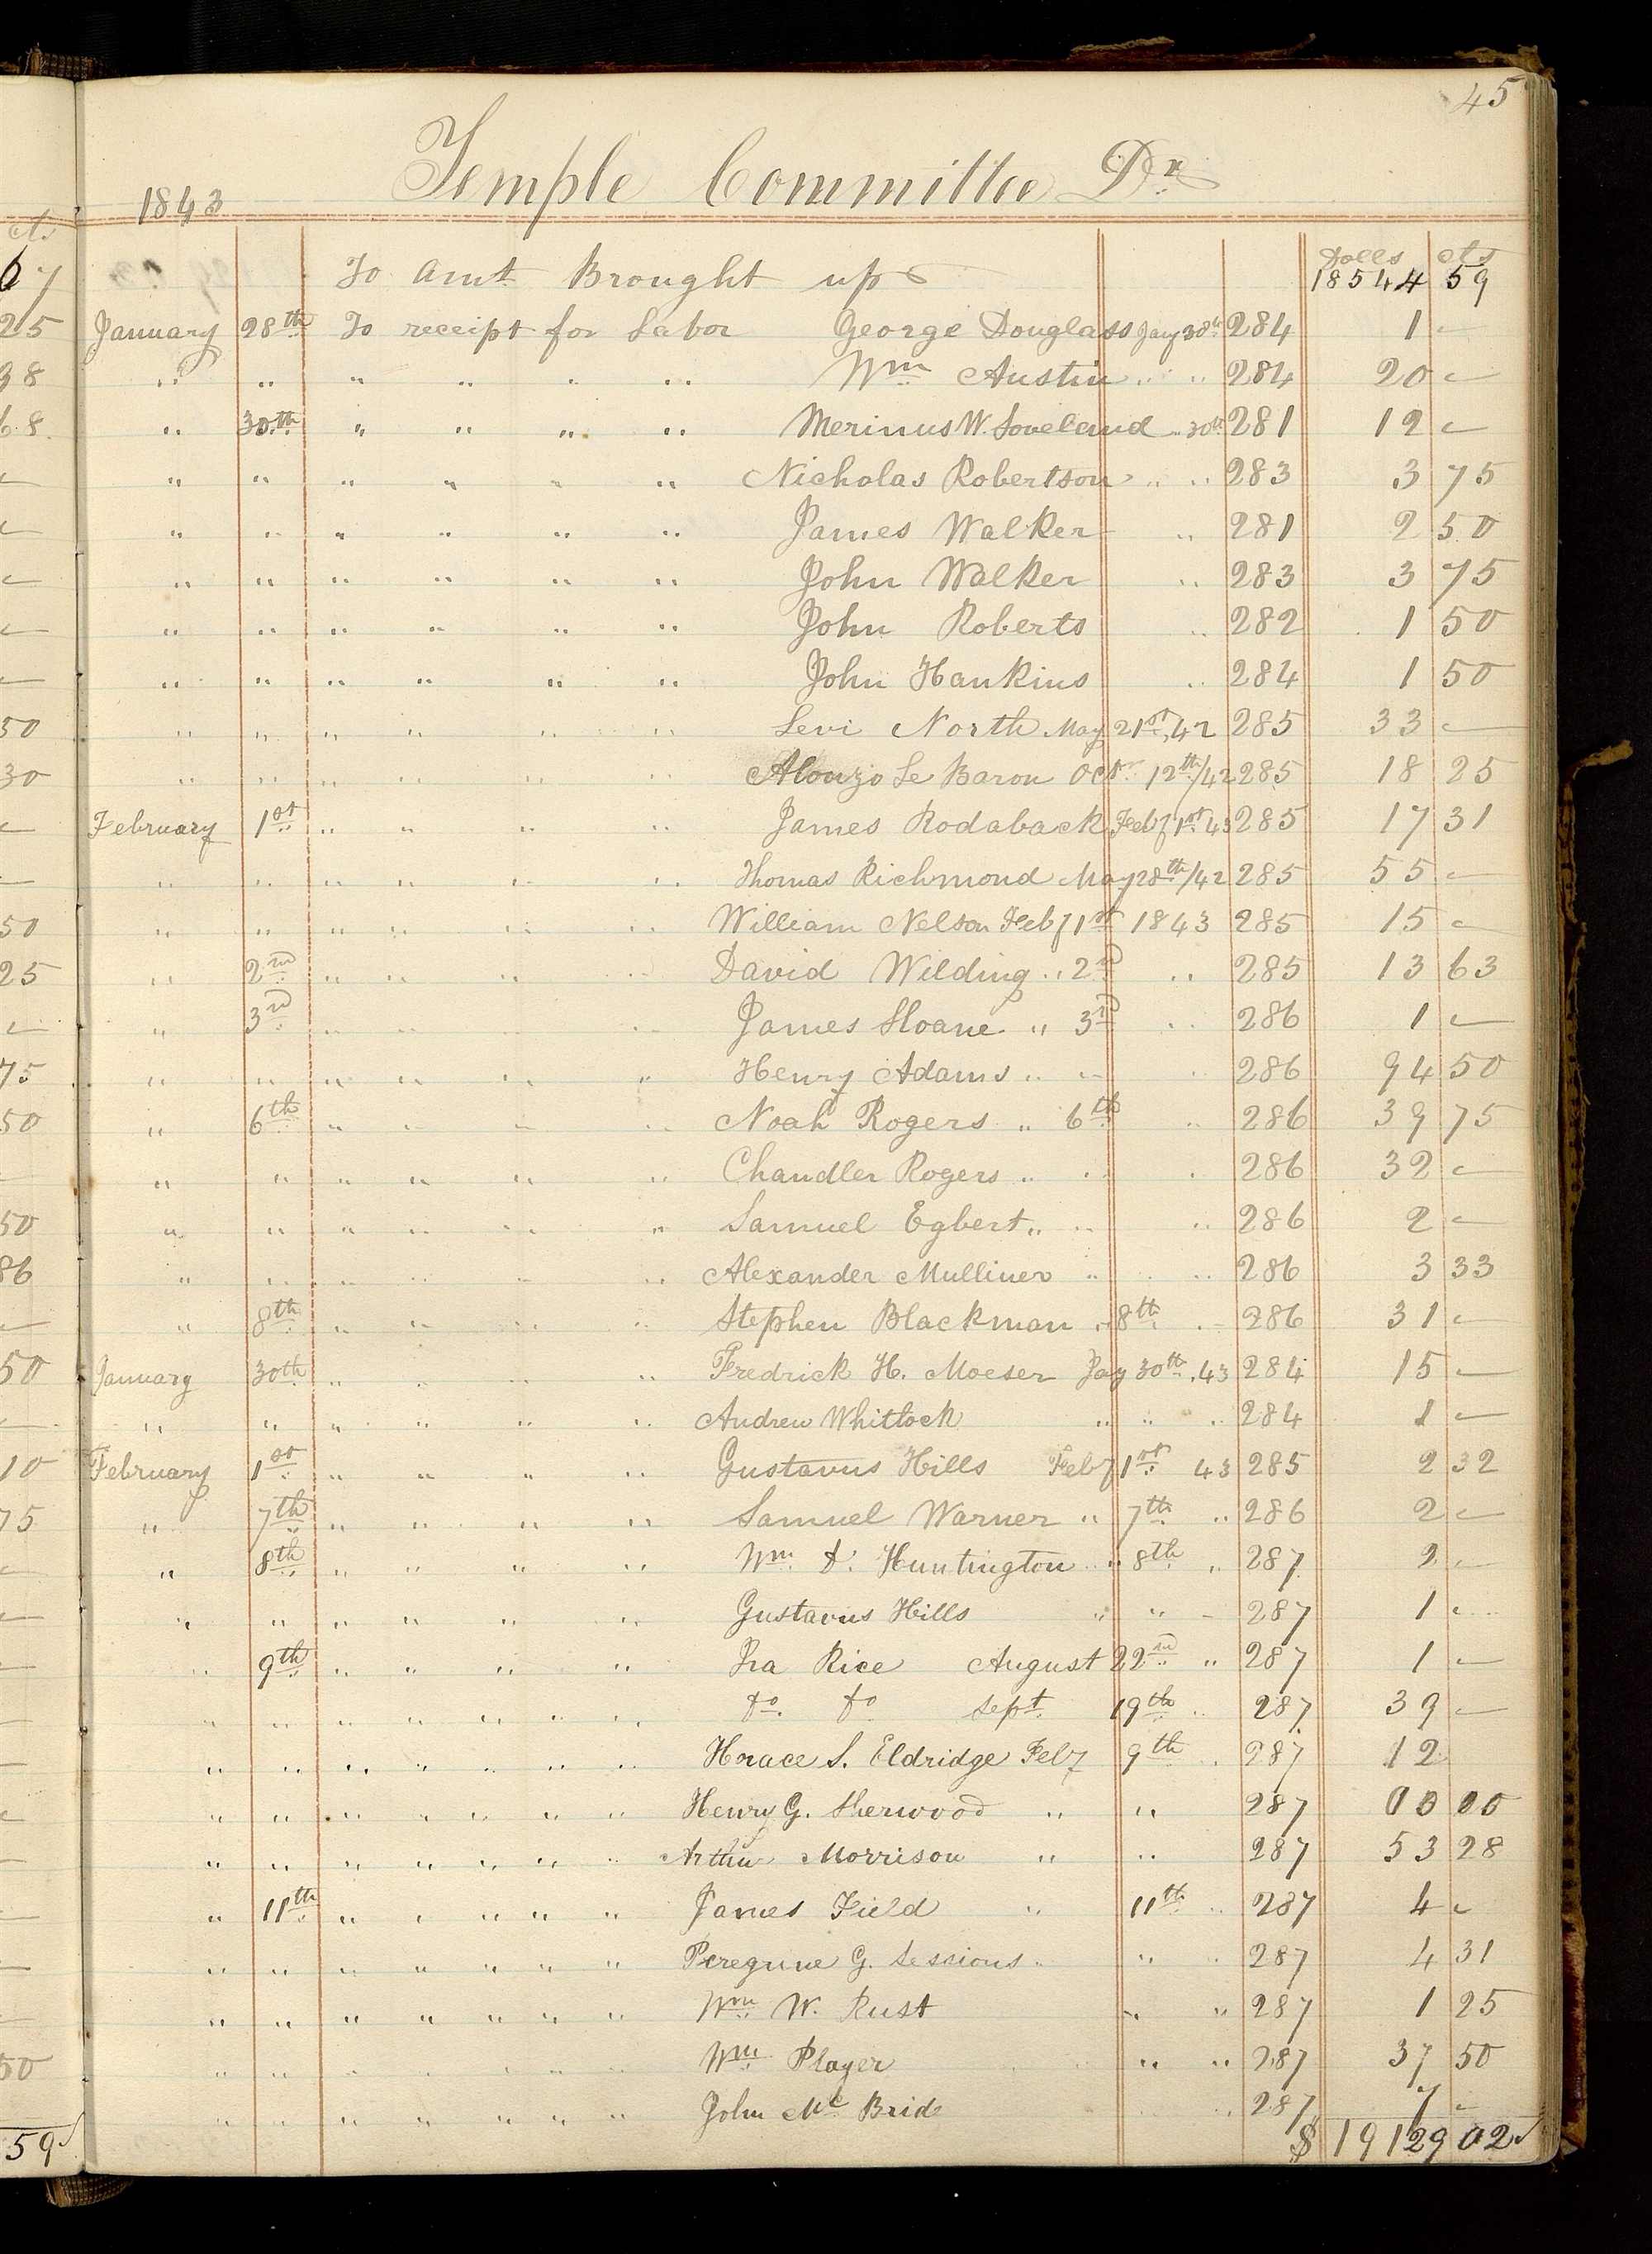 45
1843 Temple Committee Dr
Dolls cts
To Amt Brought up 18544 59
January 28th To receipt for Labor George Douglass Jany 28th 284 1 —
" " " " " " Wm Austin " " 284 20 —
" 30th " " " " Merinus W. Loveland " 30th 281 12 —
" " " " " " Nicholas Robertson " " 283 3 75
" " " " " " James Walker " 281 2 50
" " " " " " John Walker " 283 3 75
" " " " " " John Roberts " 282 1 50
" " " " " " John Hankins " 284 1 50
" " " " " " Levi North May 21st, 42 285 33 —
" " " " " " Alonzo Le Baron Octr 12th/42 285 18 25
February 1st " " " " James Rodaback Feby 1st 43 285 17 31
" " " " " " Thomas Richmond May 28th/42 285 55 —
" " " " " " William Nelson Feby 1st 1843 285 15 —
" 2nd " " " " David Wilding " 2nd " 285 13 63
" 3rd " " " " James Sloane " 3rd " 286 1 —
" " " " " " Henry Adams " " " 286 94 50
" 6th " " " " Noah Rogers " 6th " 286 39 75
" " " " " " Chandler Rogers " " " 286 32 —
" " " " " " Samuel Egbert " " " 286 2 —
" " " " " " Alexander Mulliner " " " 286 3 33
" 8th " " " " Stephen Blackman " 8th " 286 31 —
January 30th " " " " Fredrick H. Moeser Jany 30th . 43 284 15 —
" " " " " " Andrew Whitlock " " " 284 1 —
February 1st " " " " Gustavus Hills Feby 1st 43 285 2 32
" 7th " " " " Samuel Warner " 7th " 286 2 —
" 8th " " " " Wm D. Huntington " 8th " 287 2 —
" " " " " " Gustavus Hills " " " 287 1 —
" 9th " " " " Ira Rice August 22nd " 287 1 —
" " " " " " " do do Sept 19th " 287 39 —
" " " " " " " Horace S. Eldridge Feby 9th " 287 12
" " " " " " " Henry G. Sherwood " " 287 00 00
" " " " " " " Arthur Morrison " " 287 53 28
" 11th " " " " " James Field " 11th " 287 4 —
" " " " " " " Peregrine G. Sessions " " " 287 4 31
" " " " " " " Wm W. Rust " " 287 1 25
" " " " " " " Wm Player " " 287 37 50
" " " " " " " John Mc Bride " 287 7 —
$ 19129 02